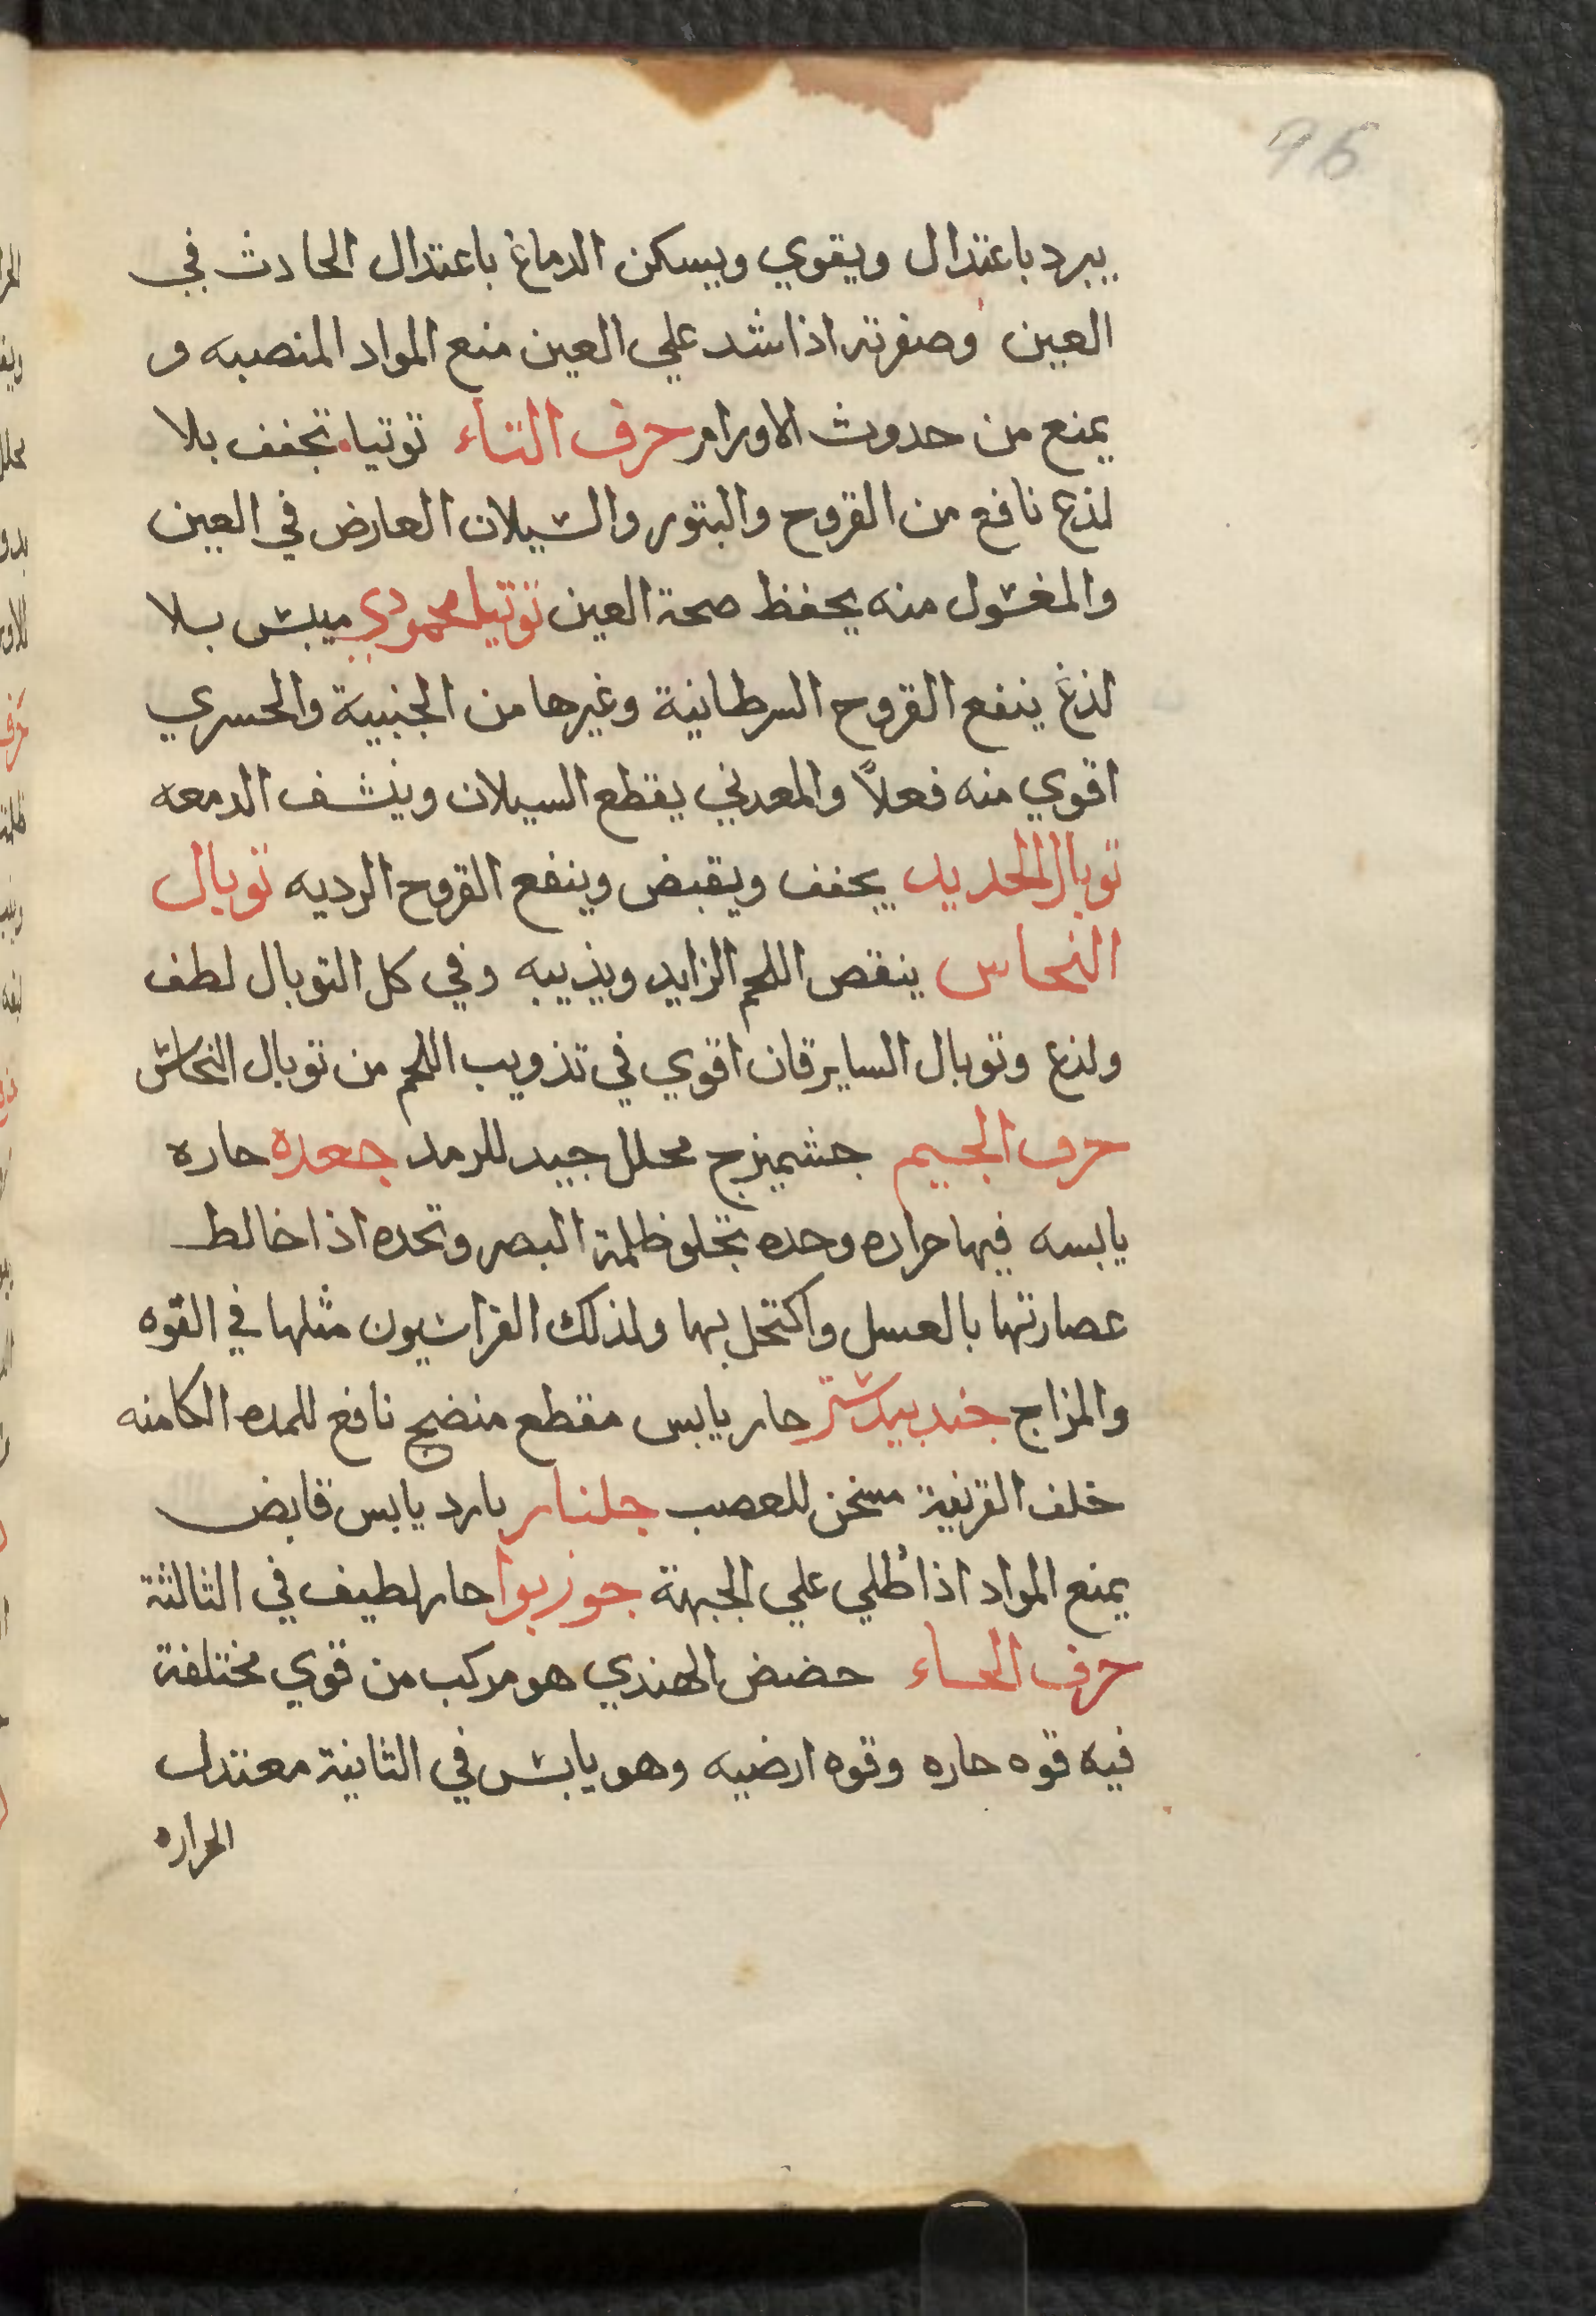 96
يبرد باعتدال ويقوي ويسكن الدماغ باعتدال الحادث في
العين وصفرته اذا شد علي العين منع المواد المنصبه و
يمنع من حدوث الاورام حرف التاء توتياء تجفف بلا
لذع نافع من القروح والبثور والسيلان العارض في العين
والمغسول منه يحفظ صحة العين توتيا محمودي ميبس بلا
لذغ ينفع القروح السرطانية وغيرها من الجنبية والحسري
اقوي منه فعلاً والمعدني يقطع السيلان وينشف الدمعه
توبال الحديد يجفف ويقبض وينفع القروح الرديه توبال
النحاس ينقص اللحم الزايد ويذيبه وفي كل التوبال لطف
ولذع وتوبال السايرقان اقوي في تذويب اللحم من توبال النحاس
حرف الجيم جشميزج محلل جيد للرمد جعده حاره
يابسه فيها حراره وحده تجلو ظلمة البصر وتحده اذا خالط
عصارتها بالعسل واكتحل بها ولذلك الفراسيون مثلها في القوه
والمزاج جندبيدستر حار يابس مقطع منضج نافع للمده الكامنه
خلف القرنية مسخن للعصب جلنار بارد يابس قابض
يمنع المواد اذا طُلي علي الجبهة جوزبوا حار لطيف في الثالثة
حرف الحاء حضض الهندي هو مركب من قوي مختلفة
فيه قوه حاره وقوه ارضيه وهو يابس في الثانية معتدل
الحراره